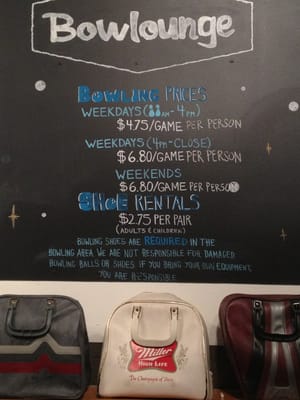 Bowlounge
BOWLING PRICES
$4.75/GAME PER PERSON
WEEKDAYS (4PM-CLOSE)
$6.80/GAME PER PERSON
WEEKENDS
$6.80/GAME PER PERSON
SHOE RENTALS
$2.75 PER PAIR
(ADULTS & CHILDREN)
BOWLING SHOES ARE REQUIRED IN THE
BOWLING AREA. WE ARE NOT RESPONSIBLE FOR DAMAGED
BOWLING BALLS OR SHOES. IF YOU BRING YOUR OWN EQUIPMENT,
YOU ARE RESPONSIBLE.
Miller
HIGH LIFE
The Champagne of Beers